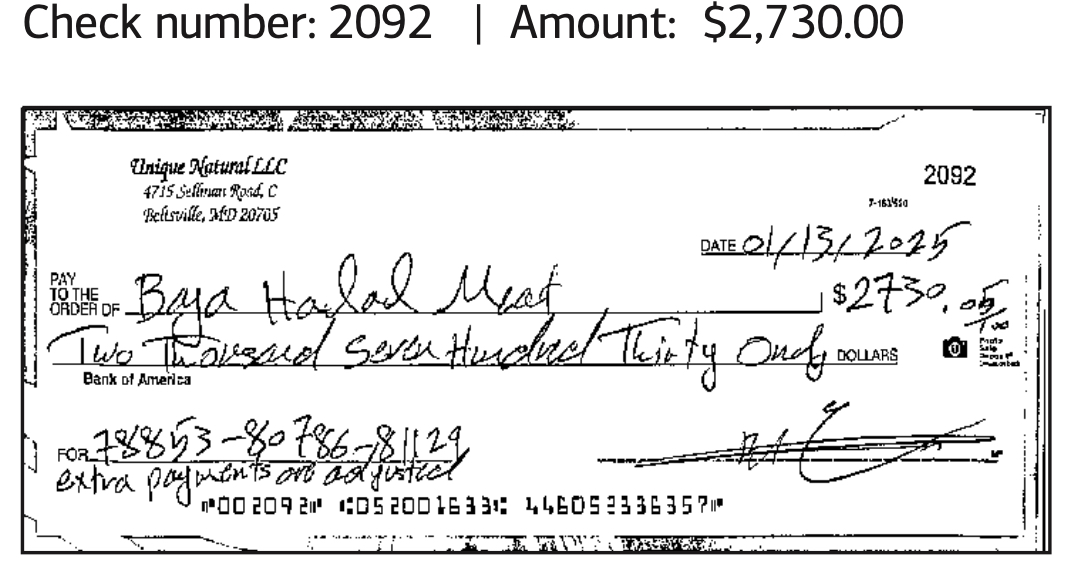 Check number: 2092 | Amount: $2,730.00
Unique Natural LLC
4715 Sellman Road, C
Beltsville, MD 20705
2092
DATE 01/13/2025
PAY TO THE ORDER OF Baja Halal Meat $2730.
Two Thousand Seven Hundred Thirty Only DOLLARS
Bank of America
FOR 78853-80786-81129
extra payments are adjusted
⑈002092⑈ ⑆052001633⑆ 446052336357⑈